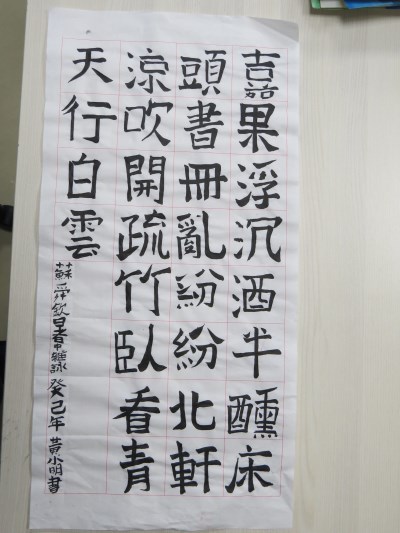 嘉果浮沉酒半醺床
頭書冊亂紛紛北軒
涼吹開疏竹臥看青
天行白雲
蘇舜欽暑中雜詠 癸己年 黃小明書